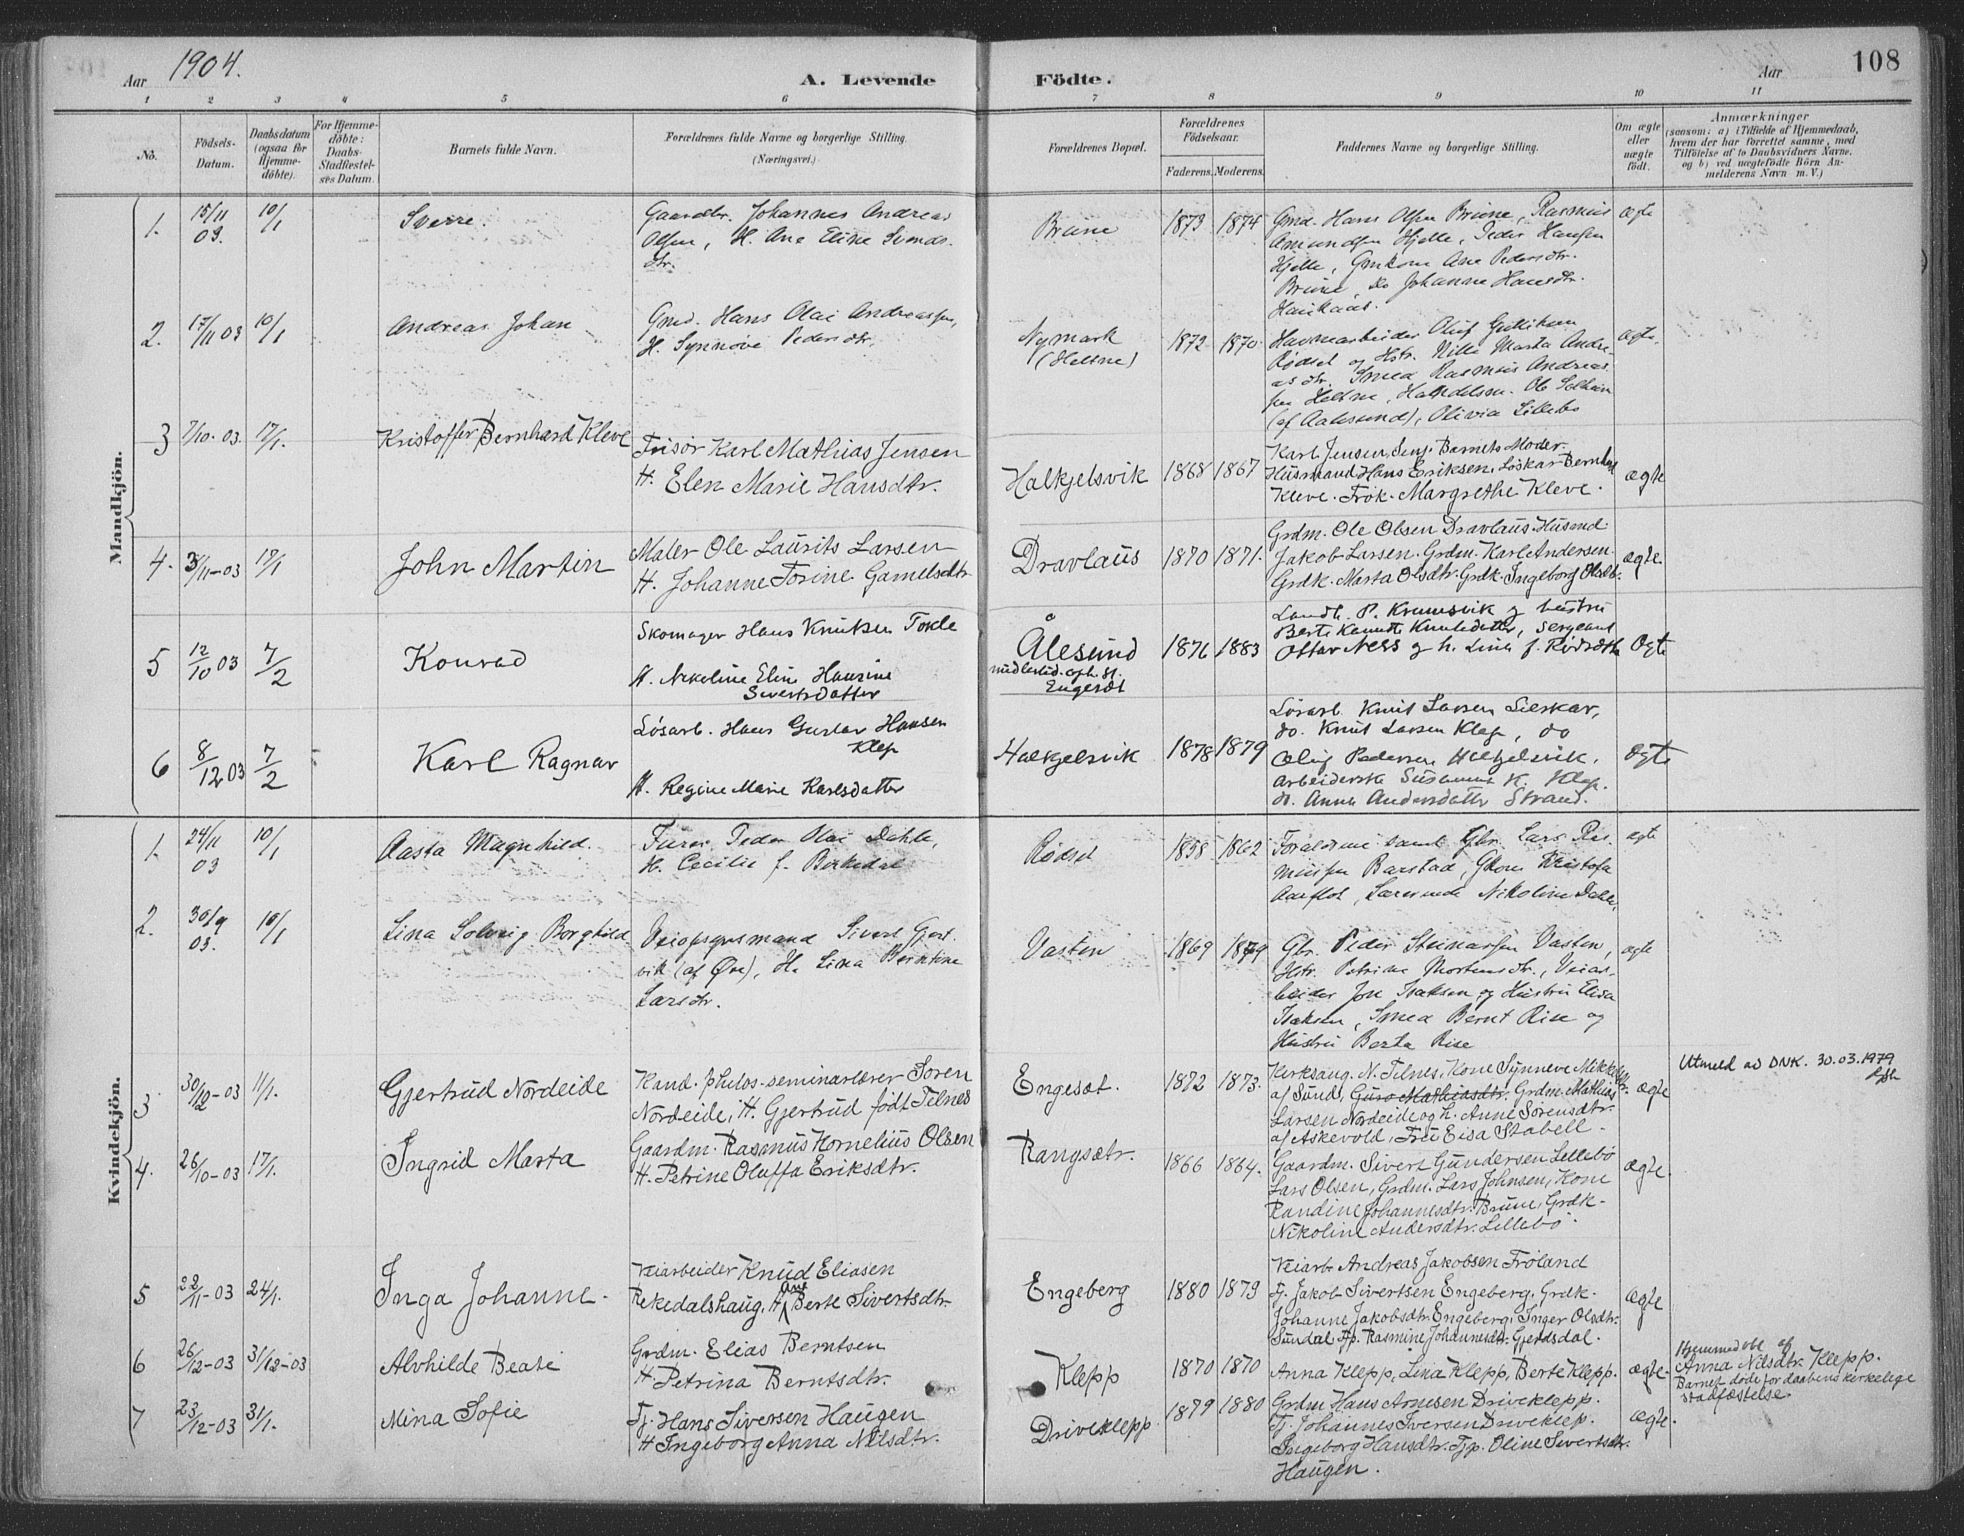 Aar 1904.
A. Levende Födte.
Aar
108
1 2 3 4 5 6 7 8 9 10 11
No.
Födsels-Datum.
Daabsdatum (ogsaa for Hjemme-döbte).
For Hjemme-döbte: Daabs-Stadfæstel-ses Datum.
Barnets fulde Navn.
Forældrenes fulde Navne og borgerlige Stilling.
(Næringsvei.)
Forældrenes Bopæl.
Forældrenes Födselsaar.
Faderens. Moderens.
Faddernes Navne og borgerlige Stilling.
Om ægte eller uægte födt.
Anmærkninger
(saasom: a) i Tilfælde af Hjemmedaab,
hvem der har forrettet samme, med
Tilföielse af to Daabsvidners Navne.
og b) ved uægtefödte Börn An-
melderens Navn m. V.)
Mandkjön.
1. 15/11 03. 10/1 Sverre.
Gaardbr. Johannes Andreas
Olsen, H. Ane Eline Svends
dtr.
Brune 1873 1874
Gmd. Hans Olsen Brune, Rasmus
Amundsen Hjelle, Peder Hansen
Hjelle, Gmkone Ane Pedersdtr.
Brune, do Johanne Hansdtr.
ægte
2. 17/11 03 10/1 Andreas Johan
Gmd. Hans Olai Andreassen,
H. Synnöve Pedersdtr.
Nymark
(Heltne)
1872 1870
Havnearbeider Oluf Gulliksen
Rödset og Hstr. Nille Marta Andre-
as dtr. Smed Rasmus Andreas
sen Heltne, Handelsm. Ole Solheim
(af Aalesund), Olivia Lillebö
ægte.
3 7/10-03. 17/1. Kristoffer Bernhard Kleve
Frisör Karl Mathias Jensen
H. Elen Marie Hansdtr.
Halkjelsvik 1868 1867
Karl Jensen, Barnets Moder.
Husmand Hans Eriksen, Bernhard
Kleve. Frök. Margrethe Kleve.
ægte
4. 3/11-03 17/1 John Martin
Maler Ole Laurits Larsen
H. Johanne Torine Gamelsdtr
Dravlaus 1870 1871.
Grdm. Ole Olsen Dravlaus. Husmd.
Jakob Larsen. Grdm. Karl Andersen.
Grdk. Marta Olsdtr. Grdk. Ingeborg Olsdtr.
ægte.
5 12/10 03 7/2 Konrad
Skomager Hans Knutsen Tokle
H. Nikoline Elin Hansine
Sivertsdatter
Ålesund
midlertid. oph. st.
Engesæt
1876 1883
Landh. P. Krumsvik og hustru
Berte Knutsdatter, Sergeant
Ottar Ness og h. Lina f. Rödseth
Ægte
6 8/12 03 7/2 Karl Ragnar
Lösarb. Hans Gustav Hansen
Klep
H. Regine Marie Karlsdatter
Halkjelsvik 1878 1879
Lösarb. Knut Larsen Lieskar,
do. Knut Larsen Klep, do
Oluf Pedersen Halkjelsvik,
Arbeiderske Susanna K. Klep.
do. Anna Andersdatter Strand.
Ægte
Kvindekjön.
1. 24/11 03 10/1 Aasta Magnhild.
Furer Peder Olai Dahle,
H. Cecilie f. Birkedal
Rödset 1858 1862
Forældrene samt Gbr. Lars Ras-
mussen Barstad, Gkone Kristofa
Aarflot, Lærerinde Nikoline Dahle,
ægte
2. 30/9 03. 10/1 Lina Solveig Borghild
Veiopsynsmand Sivert Gjert-
vik (af Öre), H. Lina Berntine
Larsdtr.
Vasten 1869 1879
Gbr. Peder Steinarsen Vasten,
Hstr. Petrine Mortensdtr., Veiar-
beider Jon Isaksen og Hustru Elisa
Isaksen, Smed Bernt Rise og
Hustru Berta Rise
ægte
3 30/12-03 11/1. Gjertrud Nordeide
Kand. philos-seminarlærer Sören
Nordeide, H. Gjertrud född Tilnes
Engesæt. 1872 1873.
Kirkesang. N. Tilnes. Kone Synneve
af Sund, Guro Mathiasdtr. Grdm. Mathias
Larsen Nordeide og h. Anne Sörensdtr.
af Askevold, Fru Eisa Stabell.
ægte
Utmeld av DNK. 30.03.1979
4. 26/10-03 17/1. Ingrid Marta
Gaardm. Rasmus Kornelius Olsen
H. Petrine Oluffa Eriksdtr.
Rangsætr. 1866 1864.
Gaardm. Sivert Gundersen Lillebö
Lars Olsen, Grdm. Lars Johnsen, Kone
Randine Johannesdtr. Brune, Grdk.
Nikoline Andersdtr. Lillebö.
ægte.
5 22/11-03 24/1. Inga Johanne.
Veiarbeider Knud Eliasen
Rekedalshaug. H. Ane Berte Sivertsdtr.
Engeberg 1880 1879
Veiarb. Andreas Jakobsen Fröland
Tj. Jakob Sivertsen Engeberg. Grdk.
Johanne Jakobsdtr. Engeberg. Inger Olsdtr.
Sundal. Tjp. Rasmine Johannesdtr. Gjerdsdal.
ægte
6 26/12-03 31/12-03 Alvhilde Beate
Grdm. Elias Berntsen
H. Petrina Berntsdtr.
Klepp 1870 1870
Anna Klepp, Lina Klepp, Berte Klepp.
ægte.
Hjemmedöbt af
Anna Nilsdtr. Klepp.
Barnet döde för daabens kirkelige
stadfæstelse
7 23/12-03 31/1. Mina Sofie
Tj. Hans Siversen Haugen
H Ingeborg Anna Nilsdtr.
Driveklepp 1879 1880
Grdm Hans Arnesen Driveklepp.
Tj. Johannes Iversen Driveklep.
Ingeborg Hansdtr. Tjp. Oline Sivertsdtr.
Haugen.
ægte.